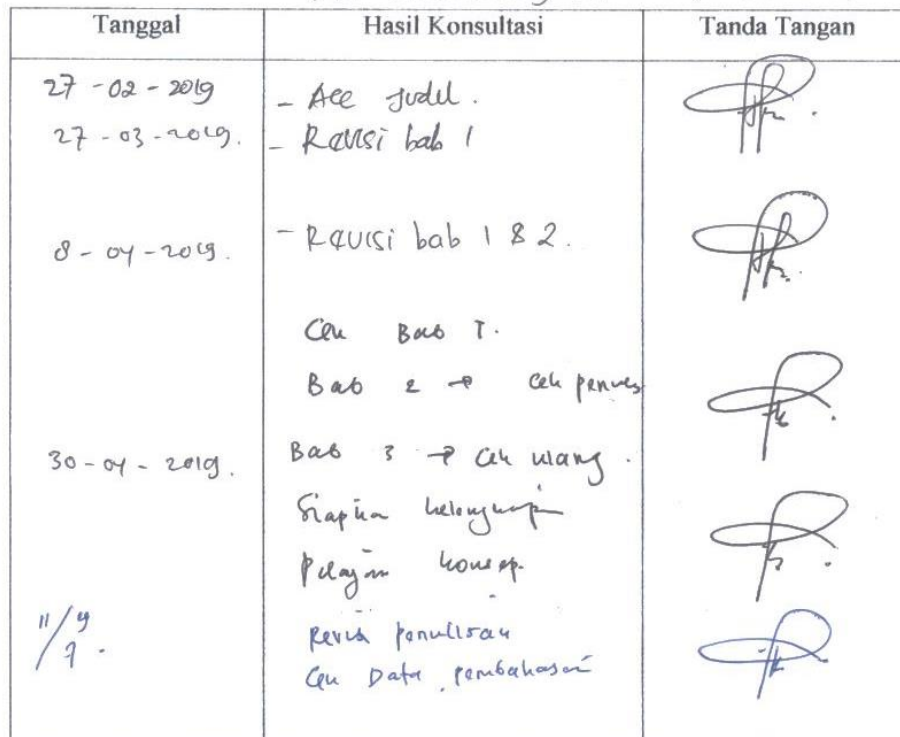 Tanggal Hasil Konsultasi Tanda Tangan
27-02-2019 - Acc Judul.
27-03-2019. - Revisi bab 1
8-04-2019. - Revisi bab 1 & 2.
Cek Bab I.
Bab 2 → Cek
30-04-2019. Bab 3 → Cek ulang.
Siapkan kelengkapan
Pelajari konsep.
Revisi penulisan
Cek Data pembahasan